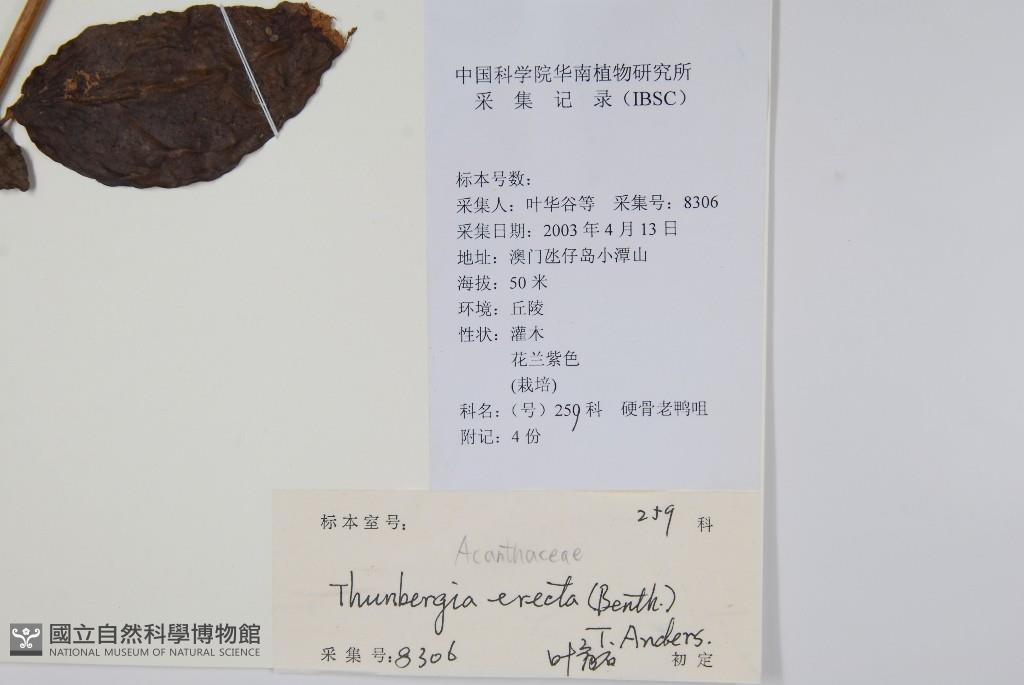 中国科学院华南植物研究所
采 集 记 录（IBSC）
标本号数：
采集人：叶华谷等 采集号：8306
采集日期：2003 年 4 月 13 日
地址：澳门氹仔岛小潭山
海拔：50 米
环境：丘陵
性状：灌木
花兰紫色
(栽培)
科名：（号）259 科 硬骨老鸭咀
附记：4 份
标本室号： 259 科
Acanthaceae
Thunbergia erecta (Benth.)
T. Anders.
采集号：8306 叶 初定
國立自然科學博物館
NATIONAL MUSEUM OF NATURAL SCIENCE